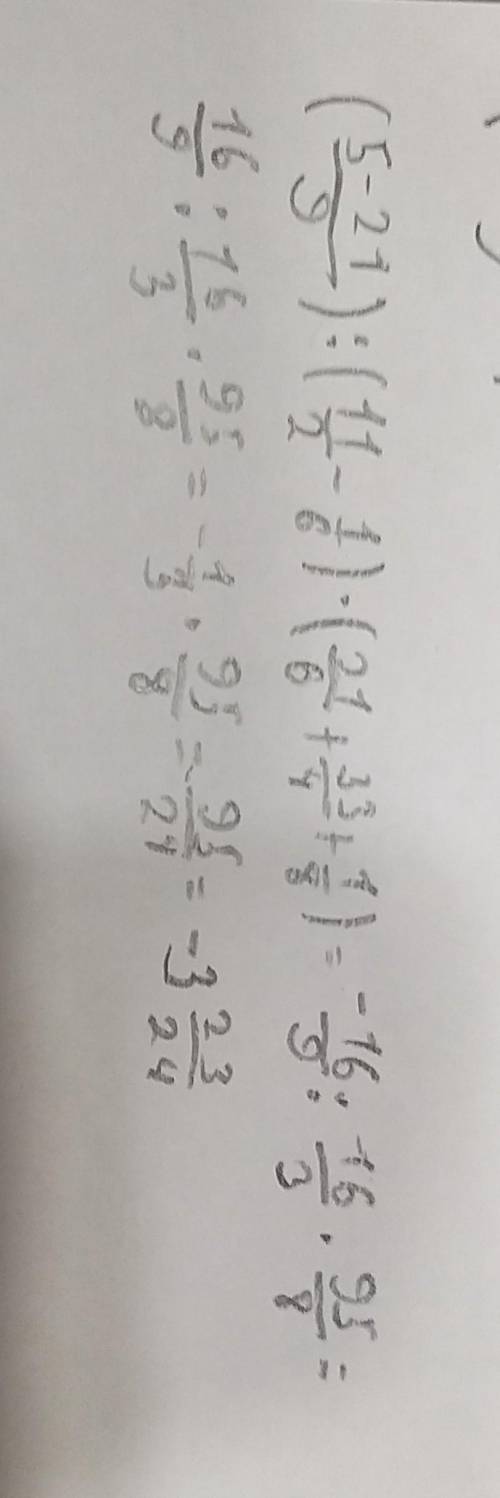 (5-21/9):(11/2-1/6)·(21/6+33/4+1/8)=-16/9:16/3·95/8=
16/9:16/3·95/8=-1/3·95/8=-95/24=-3 23/24